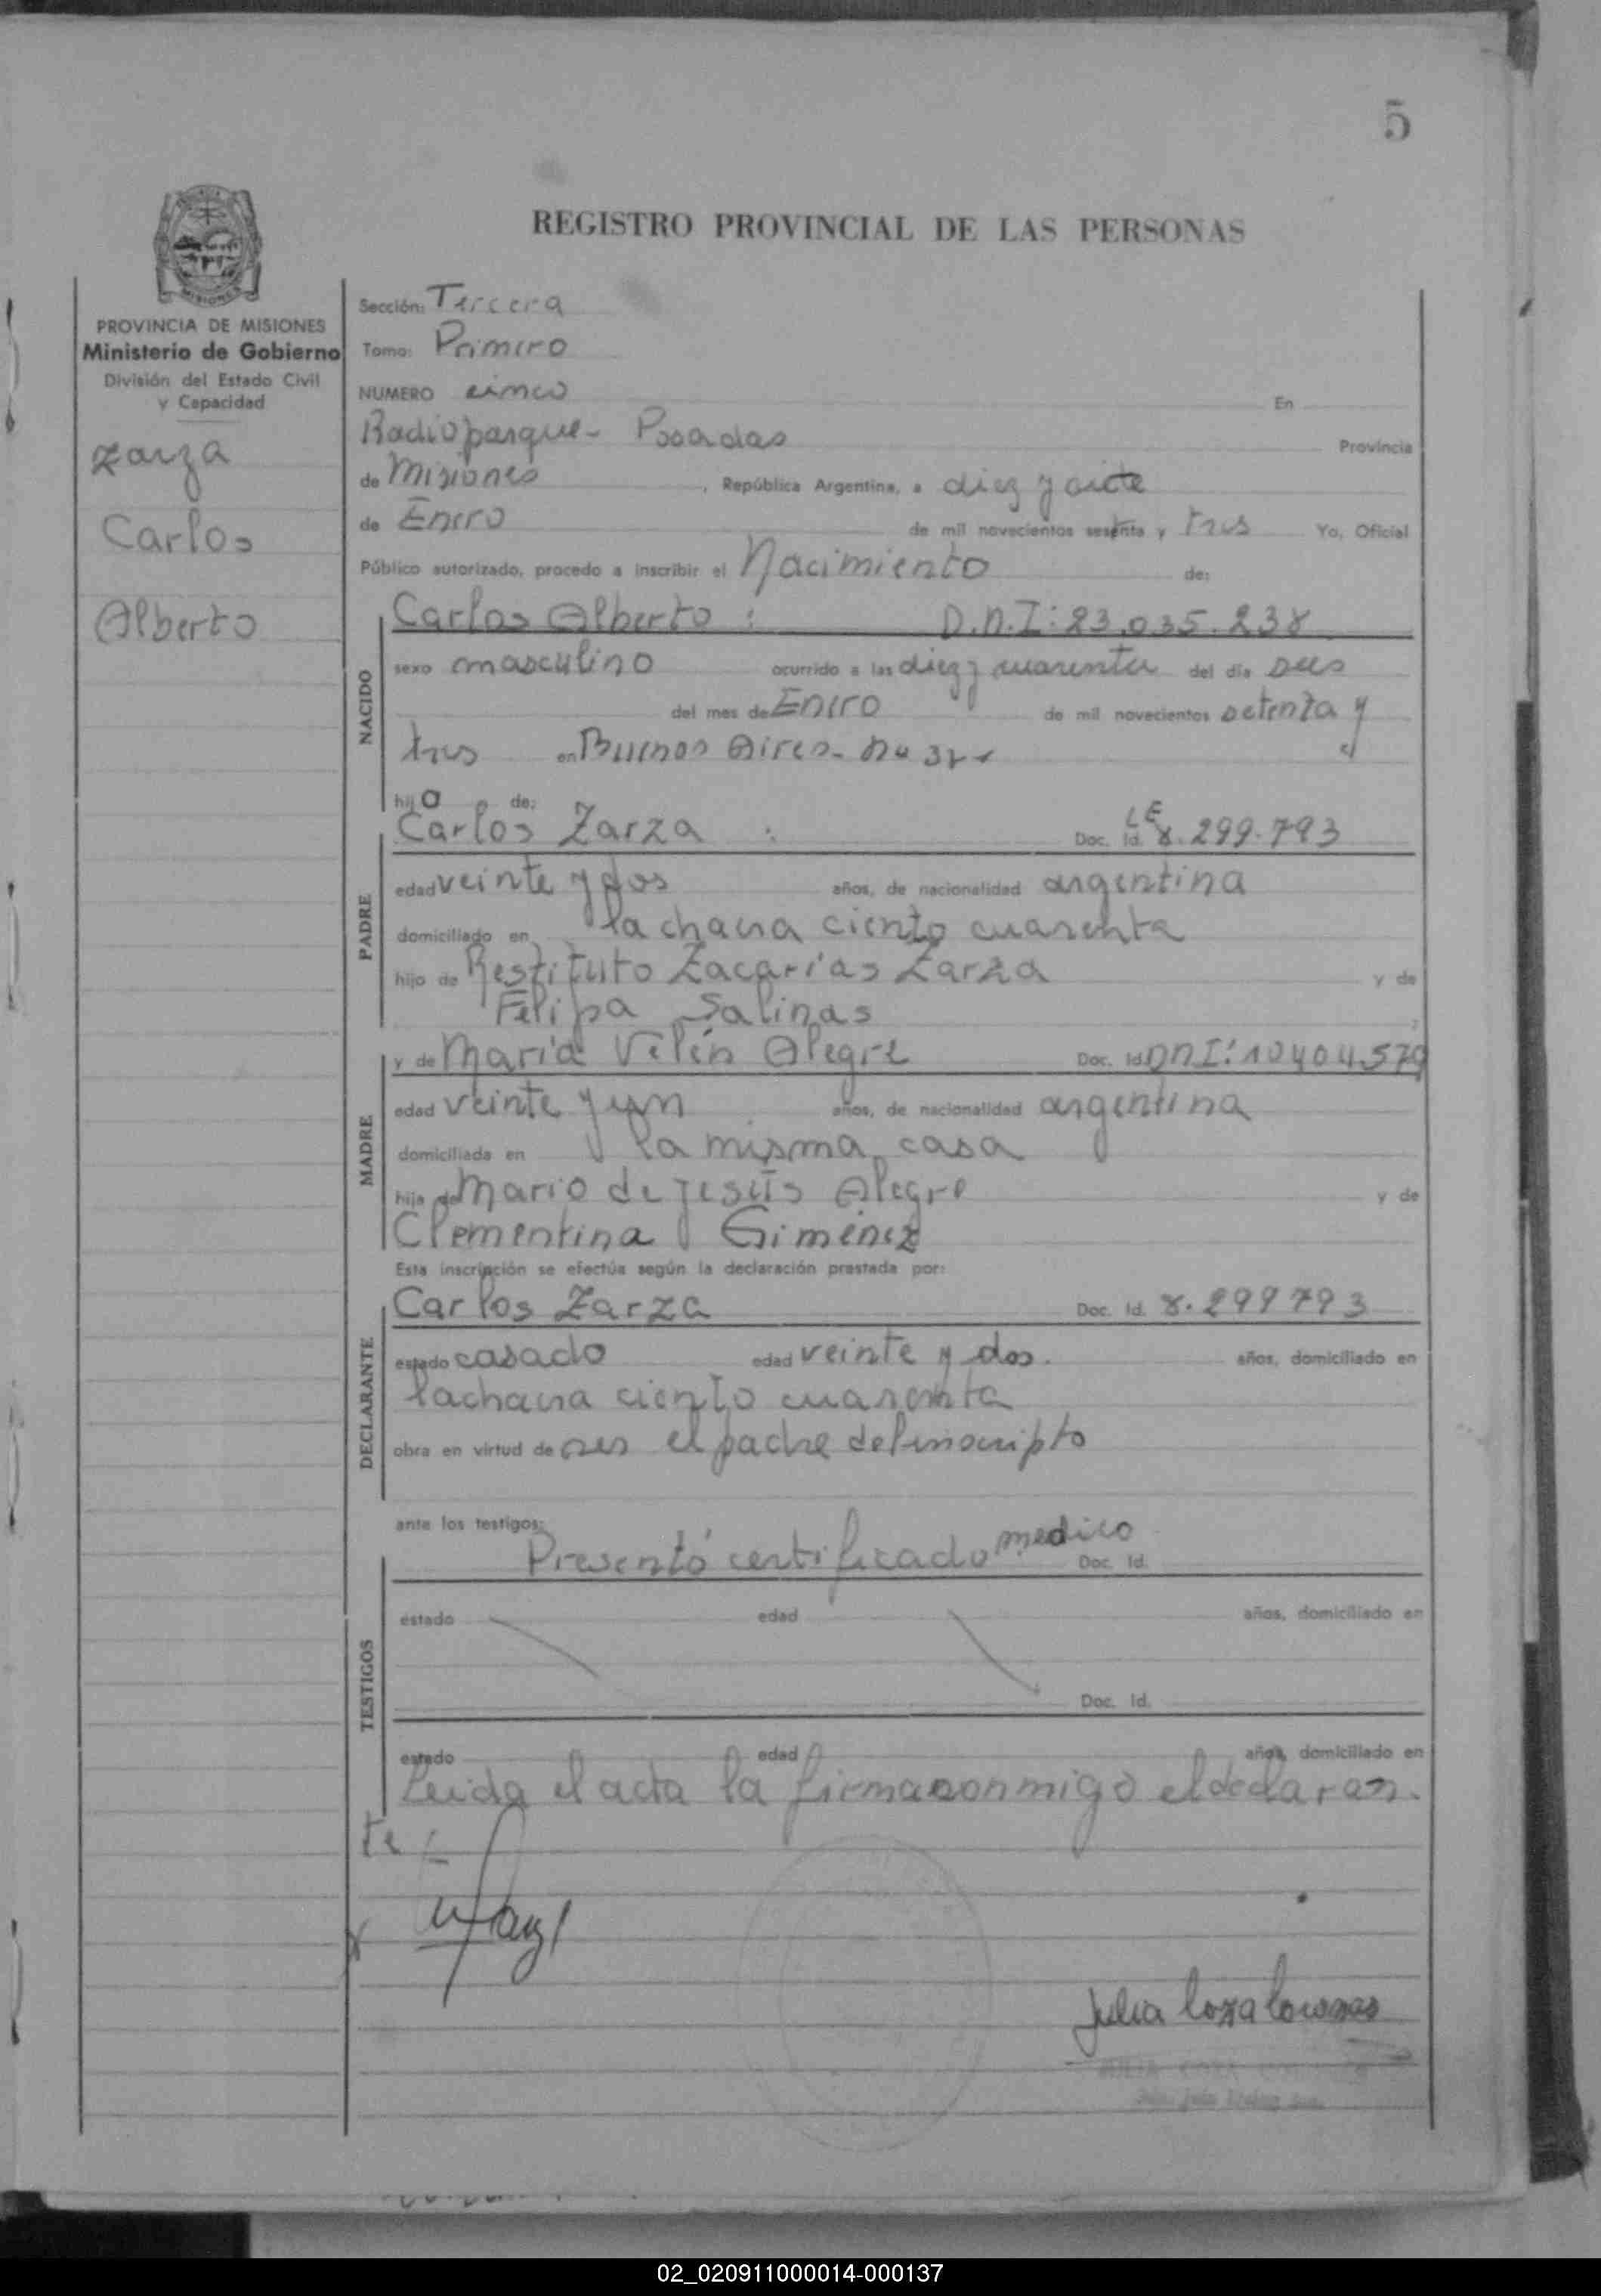 5
REGISTRO PROVINCIAL DE LAS PERSONAS
PROVINCIA DE MISIONES
Ministerio de Gobierno
División del Estado Civil
y Capacidad
Zarza
Carlos
Alberto
Sección: Tercera
Tomo: Primero
NUMERO cinco En
Radioparque - Posadas Provincia
de Misiones, República Argentina, a diez y siete
de Enero de mil novecientos sesenta y tres Yo, Oficial
Público autorizado, procedo a inscribir el Nacimiento de:
NACIDO
Carlos Alberto : D.N.I: 23.035.238
sexo masculino ocurrido a las diez y cuarenta del día seis
del mes de Enero de mil novecientos setenta y
tres en Buenos Aires - nº
hijo de:
PADRE
Carlos Zarza : Doc. Id. LE 8.299.793
edad veinte y dos años, de nacionalidad argentina
domiciliado en la chacra ciento cuarenta
hijo de Restituto Zacarías Zarza y de
Felipa Salinas
MADRE
y de María Velén Alegre Doc. Id. DNI: 10404.579
edad veinte y un años, de nacionalidad argentina
domiciliada en la misma casa
hija de Mario de Jesús Alegre y de
Clementina Giménez
Esta inscripción se efectúa según la declaración prestada por:
DECLARANTE
Carlos Zarza Doc. Id. 8.299793
estado casado edad veinte y dos. años, domiciliado en
la chacra ciento cuarenta
obra en virtud de ser el padre del inscripto
ante los testigos:
TESTIGOS
Presentó certificado medico Doc. Id.
estado edad años, domiciliado en
Doc. Id.
estado edad años, domiciliado en
Leida el acta la firma conmigo el declaran-
te :
Julia
JULIA
02_020911000014-000137